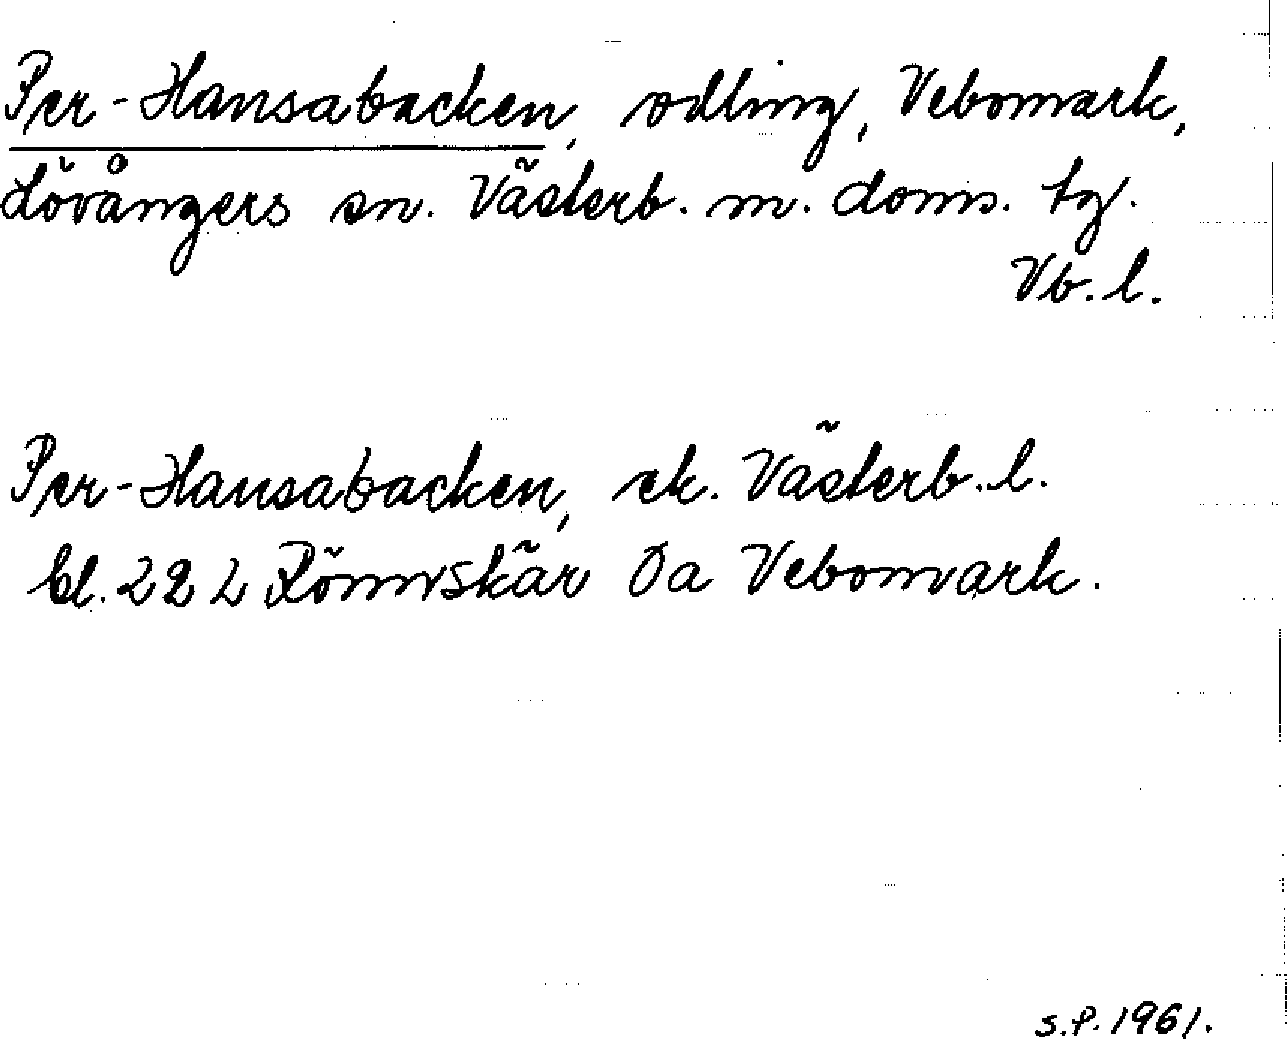 Per-Hansabacken, odling, Vebomark,
Lövångers sn. Västerb. m. doms. tg.
Vb. l.
Per-Hansabacken, ek. Västerb. l.
bl. 22 L Rönnskär Öa Vebomark.
S.P. 1961.